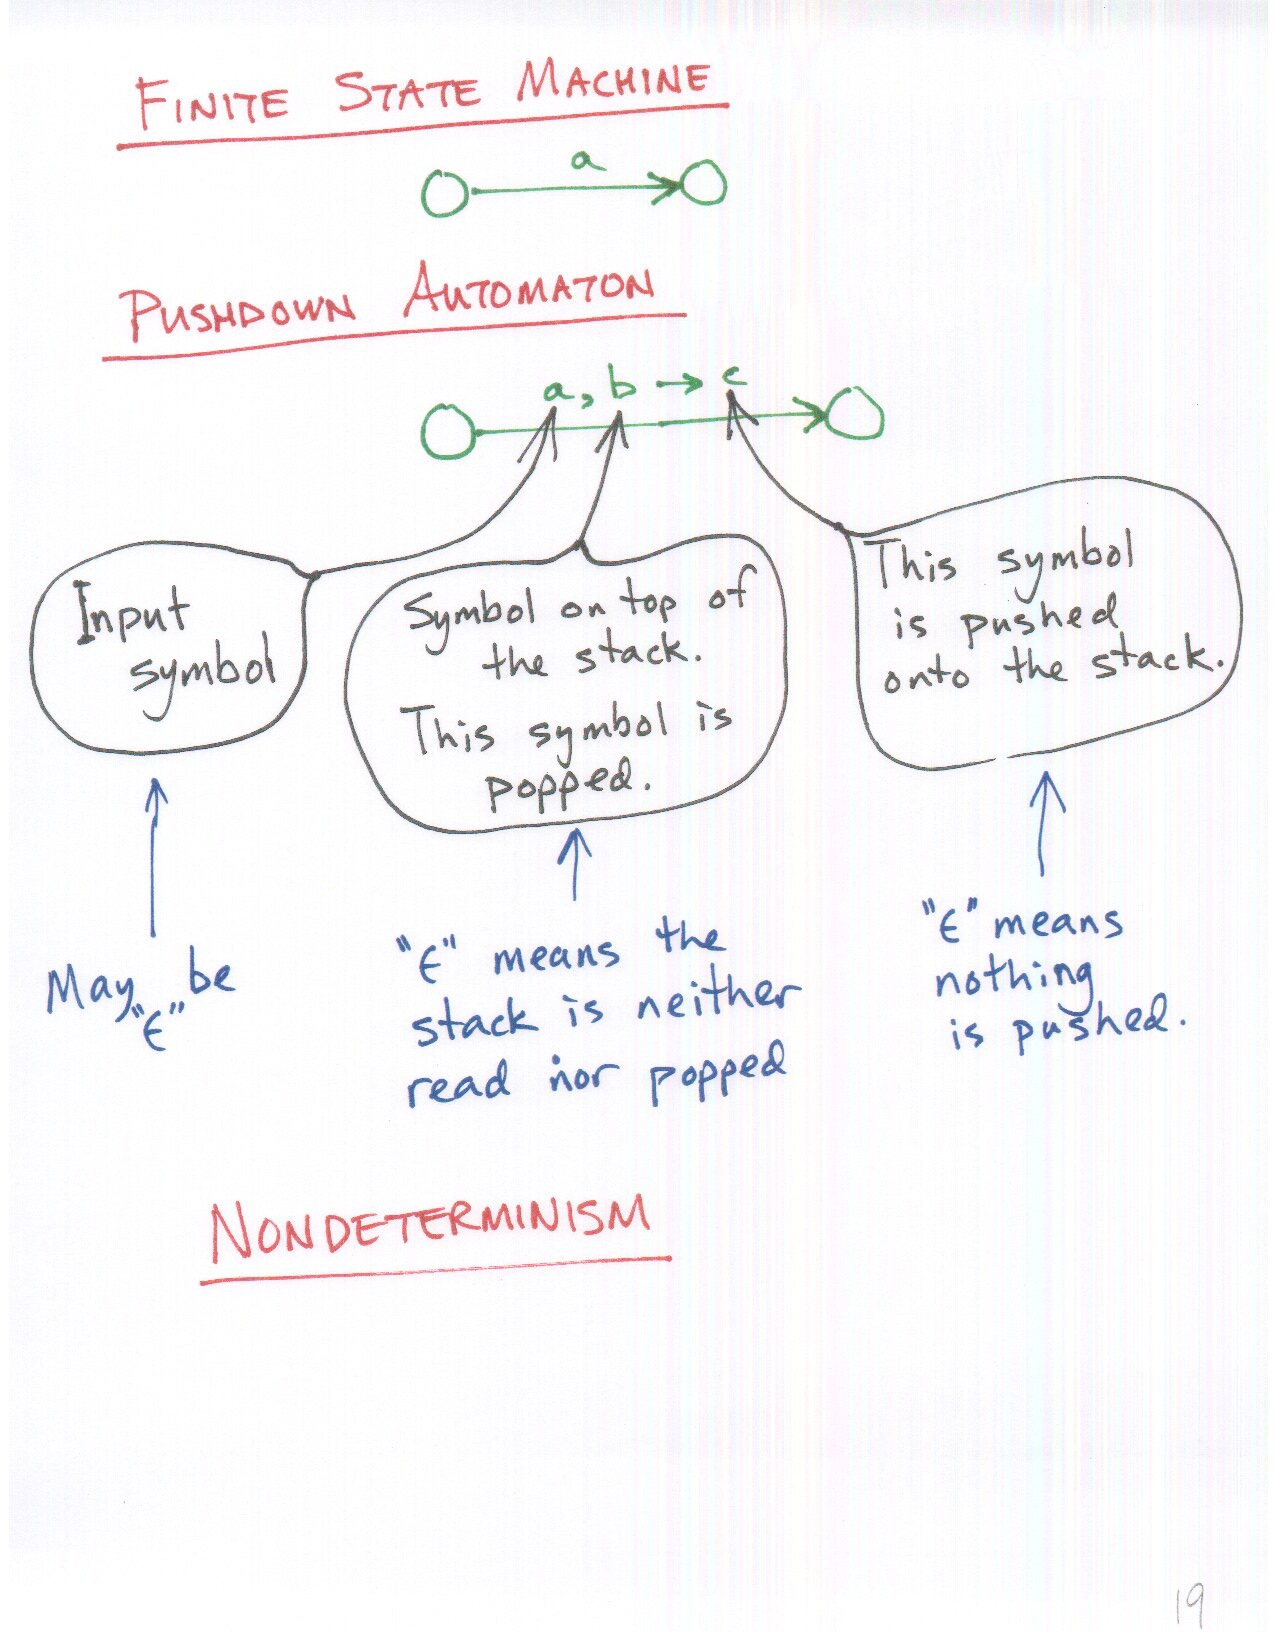 FINITE STATE MACHINE
a
PUSHDOWN AUTOMATON
a, b → c
Input
symbol
Symbol on top of
the stack.
This symbol is
popped.
This symbol
is pushed
onto the stack.
May be
"ε"
"ε" means the
stack is neither
read nor popped
"ε" means
nothing
is pushed.
NONDETERMINISM
19